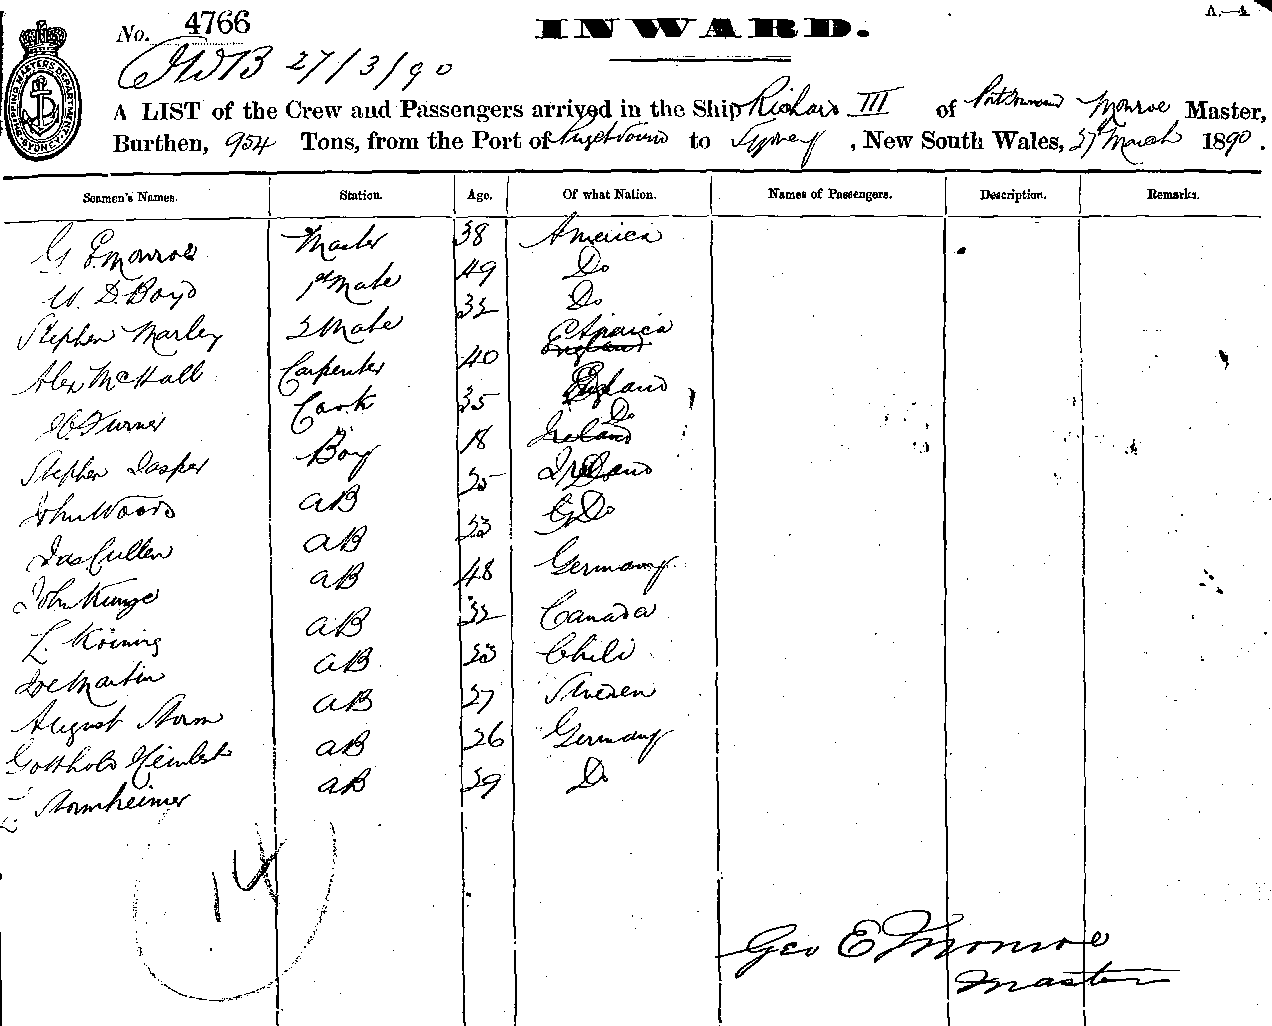 No. 4766
INWARD.
27/3/90
A LIST of the Crew and Passengers arrived in the Ship Richard III of Monroe Master,
Burthen, 954 Tons, from the Port of Puget Sound to Sydney, New South Wales, 27 March 1890.
Seamen's Names. Station. Age. Of what Nation. Names of Passengers. Description. Remarks.
G E Monroe Master 38 America
W. D. Boyd 1st Mate 49 Do
Stephen Marley 2 Mate 32 Do
Alex McHall Carpenter 40
Turner Cook 35 England
Stephen Jasper Boy 18 Do
John Woods AB 25 Ireland
Jas Cullen AB 23 Do
John Kunze AB 48 Germany
L. Koining AB 32 Canada
Joe Martin AB 23 Chili
August Storm AB 27 Sweden
Gotthold AB 26 Germany
Stormheimer AB 29 Do
14
Geo E Monroe
Master